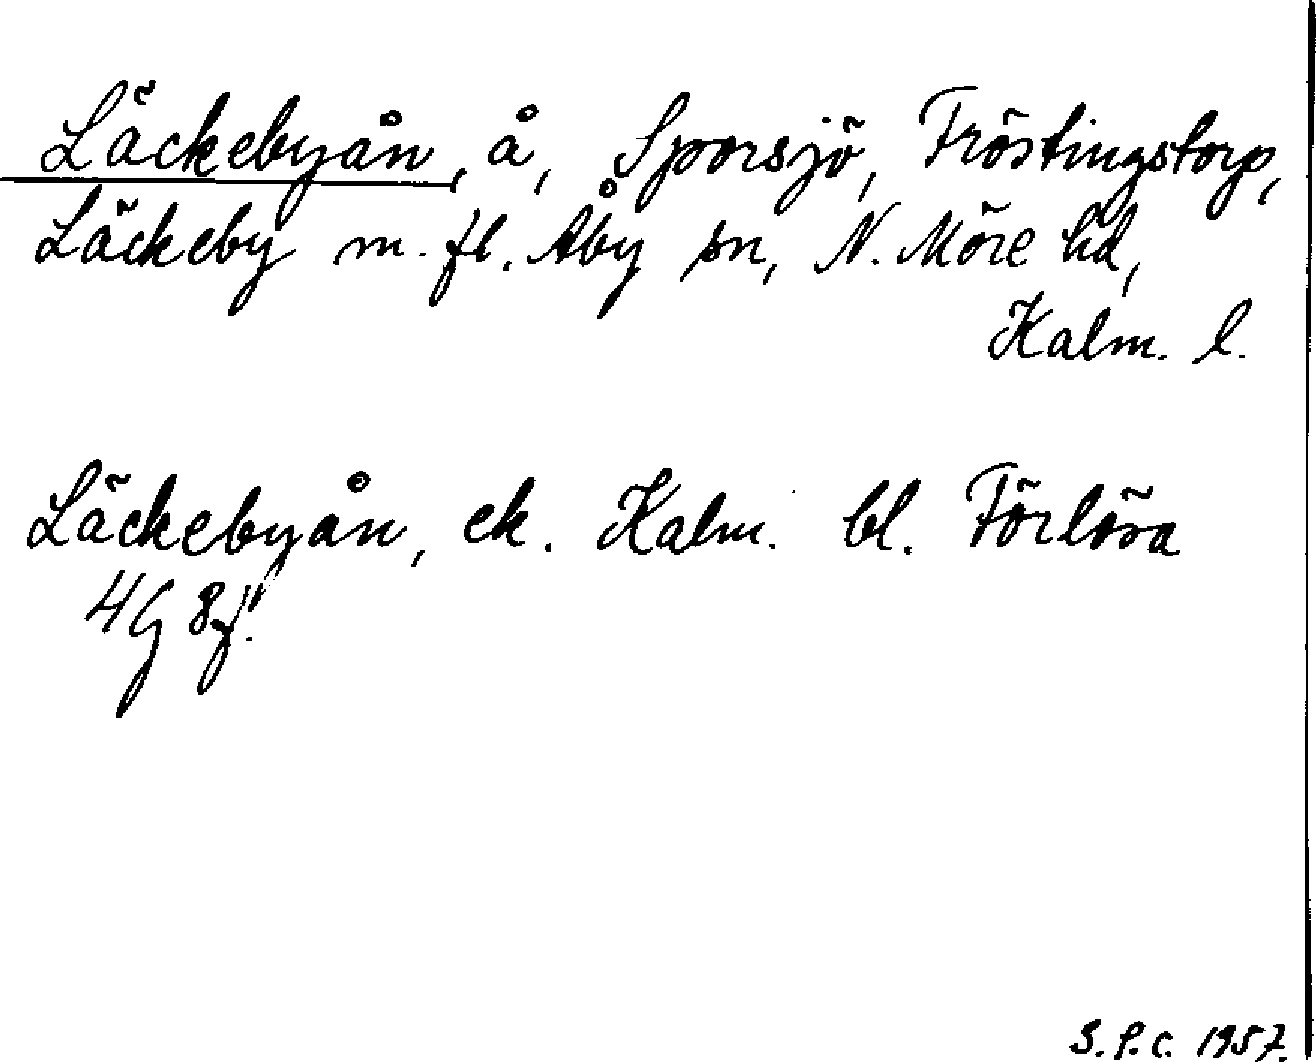 Läckebyån, å, Sporsjö, Fröstingstorp,
Läckeby m. fl. Åby sn, N. Möre hd,
Kalm. l.
Läckebyån, ek. Kalm. bl. Förlösa
4G 8f.
S.P.C. 1957.